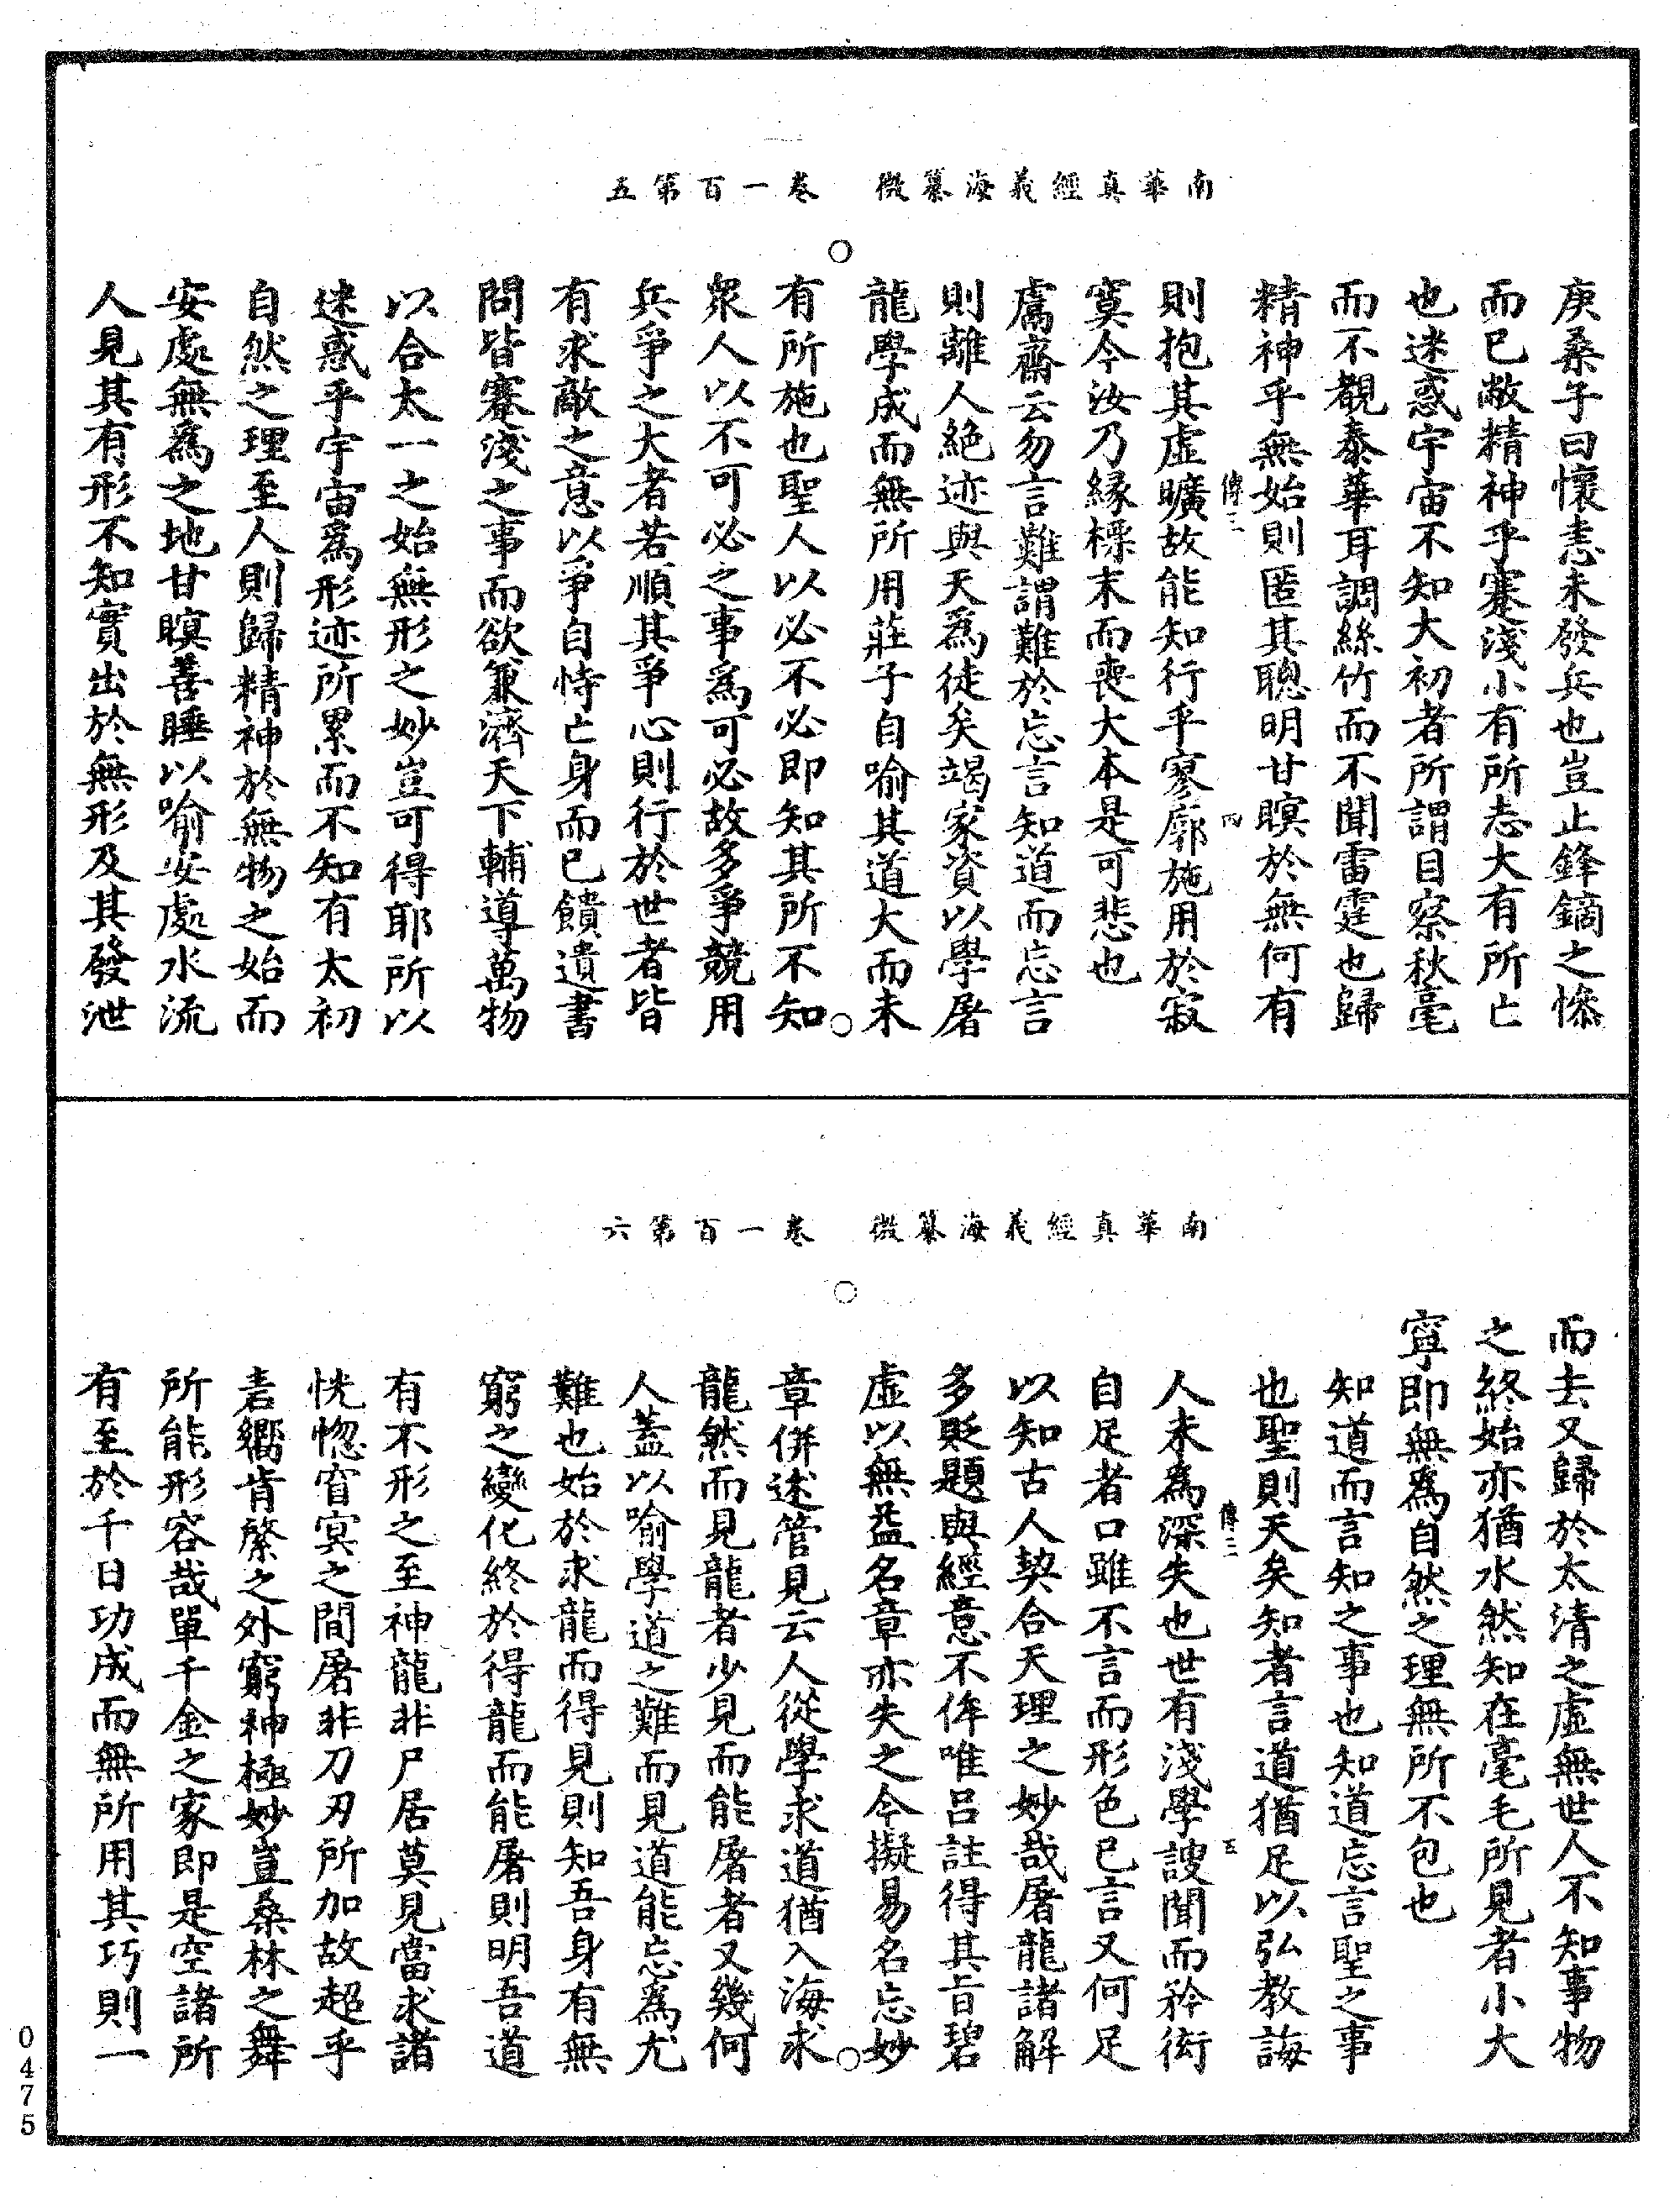 南華真經義海纂微　卷一百第五
庚桑子曰懷恚未發兵也豈止鋒鏑之慘
而已敝精神乎蹇淺小有所志大有所亡
也迷惑宇宙不知大初者所謂目察秋毫
而不覩泰華耳調絲竹而不聞雷霆也歸
精神乎無始則匿其聰明甘瞑於無何有
傳三
丙
則抱其虛曠故能知行乎寥廓施用於寂
寞今汝乃緣標末而喪大本是可悲也
鬳齋云勿言難謂難於忘言知道而忘言
則離人絕迹與天爲徒矣竭家資以學屠
龍學成而無所用莊子自喻其道大而未
有所施也聖人以必不必即知其所不知
衆人以不可必之事爲可必故多爭競用
兵爭之大者若順其爭心則行於世者皆
有求敵之意以爭自恃亡身而已饋遺書
問皆蹇淺之事而欲兼濟天下輔導萬物
以合太一之始無形之妙豈可得耶所以
迷惑乎宇宙爲形迹所累而不知有太初
自然之理至人則歸精神於無物之始而
安處無爲之地甘瞑善睡以喻安處水流
人見其有形不知實出於無形及其發泄
南華真經義海纂微　卷一百第六
而去又歸於太清之虛無世人不知事物
之終始亦猶水然知在毫毛所見者小大
寧即無爲自然之理無所不包也
知道而言知之事也知道忘言聖之事
也聖則天矣知者言道猶足以弘教誨
傳三
五
人未爲深失也世有淺學謏聞而矜衒
自足者口雖不言而形色已言又何足
以知古人契合天理之妙哉屠龍諸解
多貶題與經意不侔唯吕註得其旨碧
虛以無益名章亦失之今擬易名忘妙
章併述管見云人從學求道猶入海求
龍然而見龍者少見而能屠者又幾何
人蓋以喻學道之難而見道能忘爲尤
難也始於求龍而得見則知吾身有無
窮之變化終於得龍而能屠則明吾道
有不形之至神龍非尸居莫見當求諸
恍惚窅冥之間屠非刀刃所加故超乎
砉嚮肯綮之外窮神極妙豈桑林之舞
所能形容哉單千金之家即是空諸所
有至於千日功成而無所用其巧則一
0475